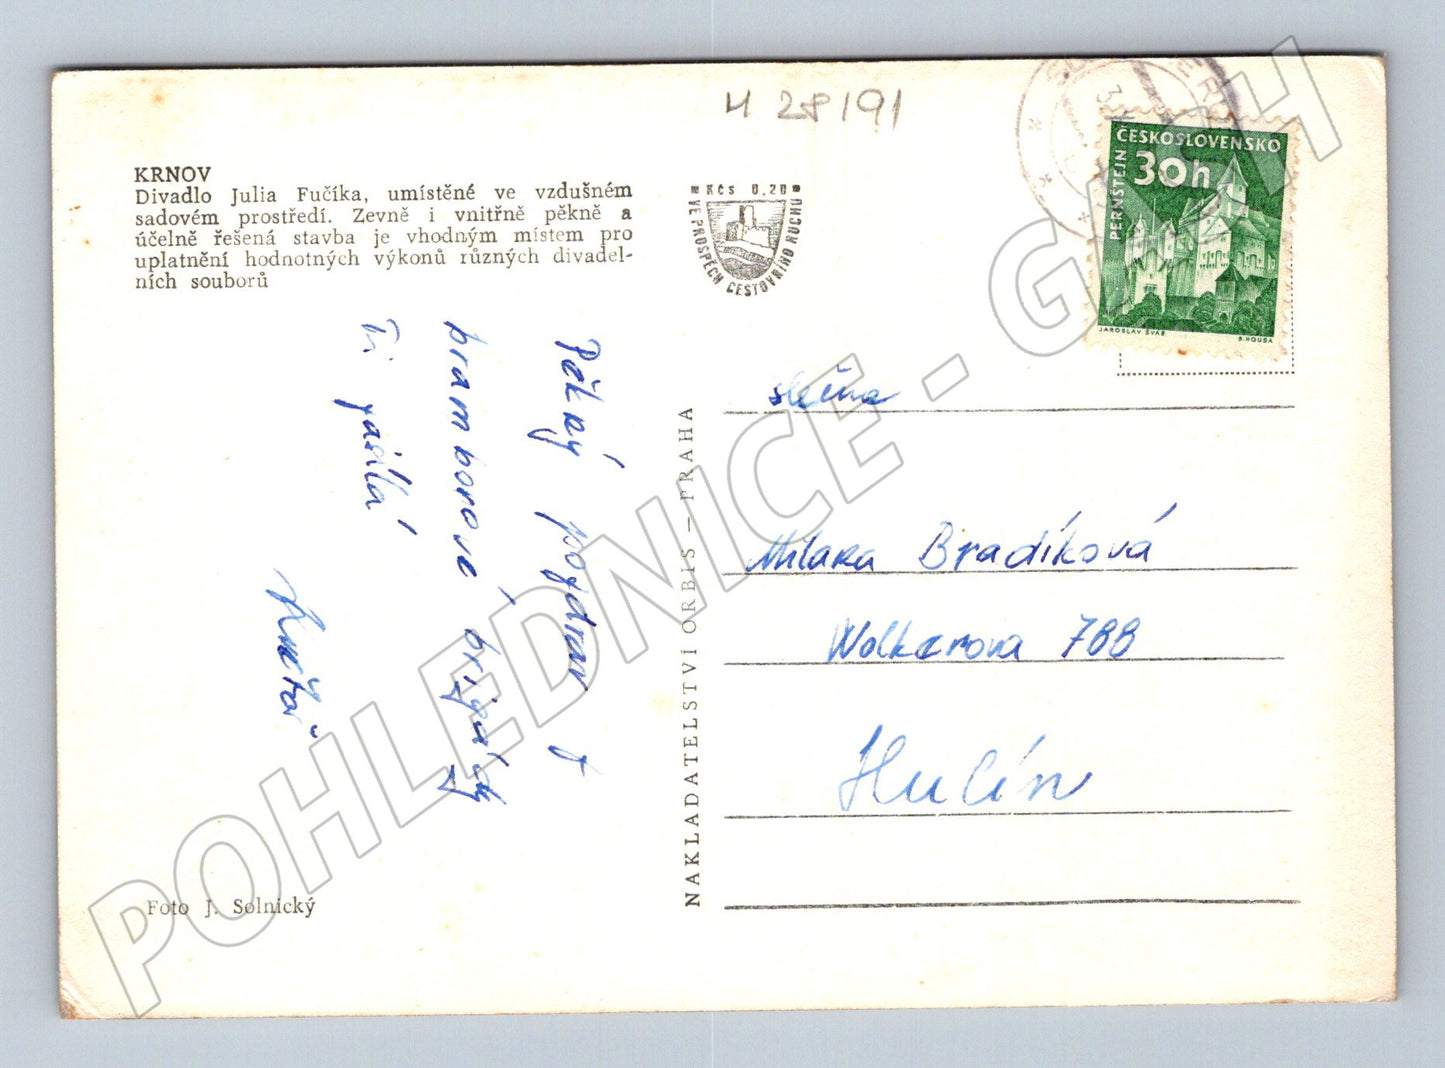 H 28191
KRNOV
Divadlo Julia Fučíka, umístěné ve vzdušném
sadovém prostředí. Zevně i vnitřně pěkně a
účelně řešená stavba je vhodným místem pro
uplatnění hodnotných výkonů různých divadel-
ních souborů
Kčs 0,20
VE PROSPĚCH CESTOVNÍHO RUCHU
ČESKOSLOVENSKO
30h
PERNŠTEJN
JAROSLAV ŠVÁB
B. HOUSA
Pěkný pozdrav z
bramborové brigády
Ti
NAKLADATELSTVÍ ORBIS – PRAHA
slečna
Milana Bradíková
Wolkerova 788
Hulín
Foto J. Solnický
POHLEDNICE - GACH